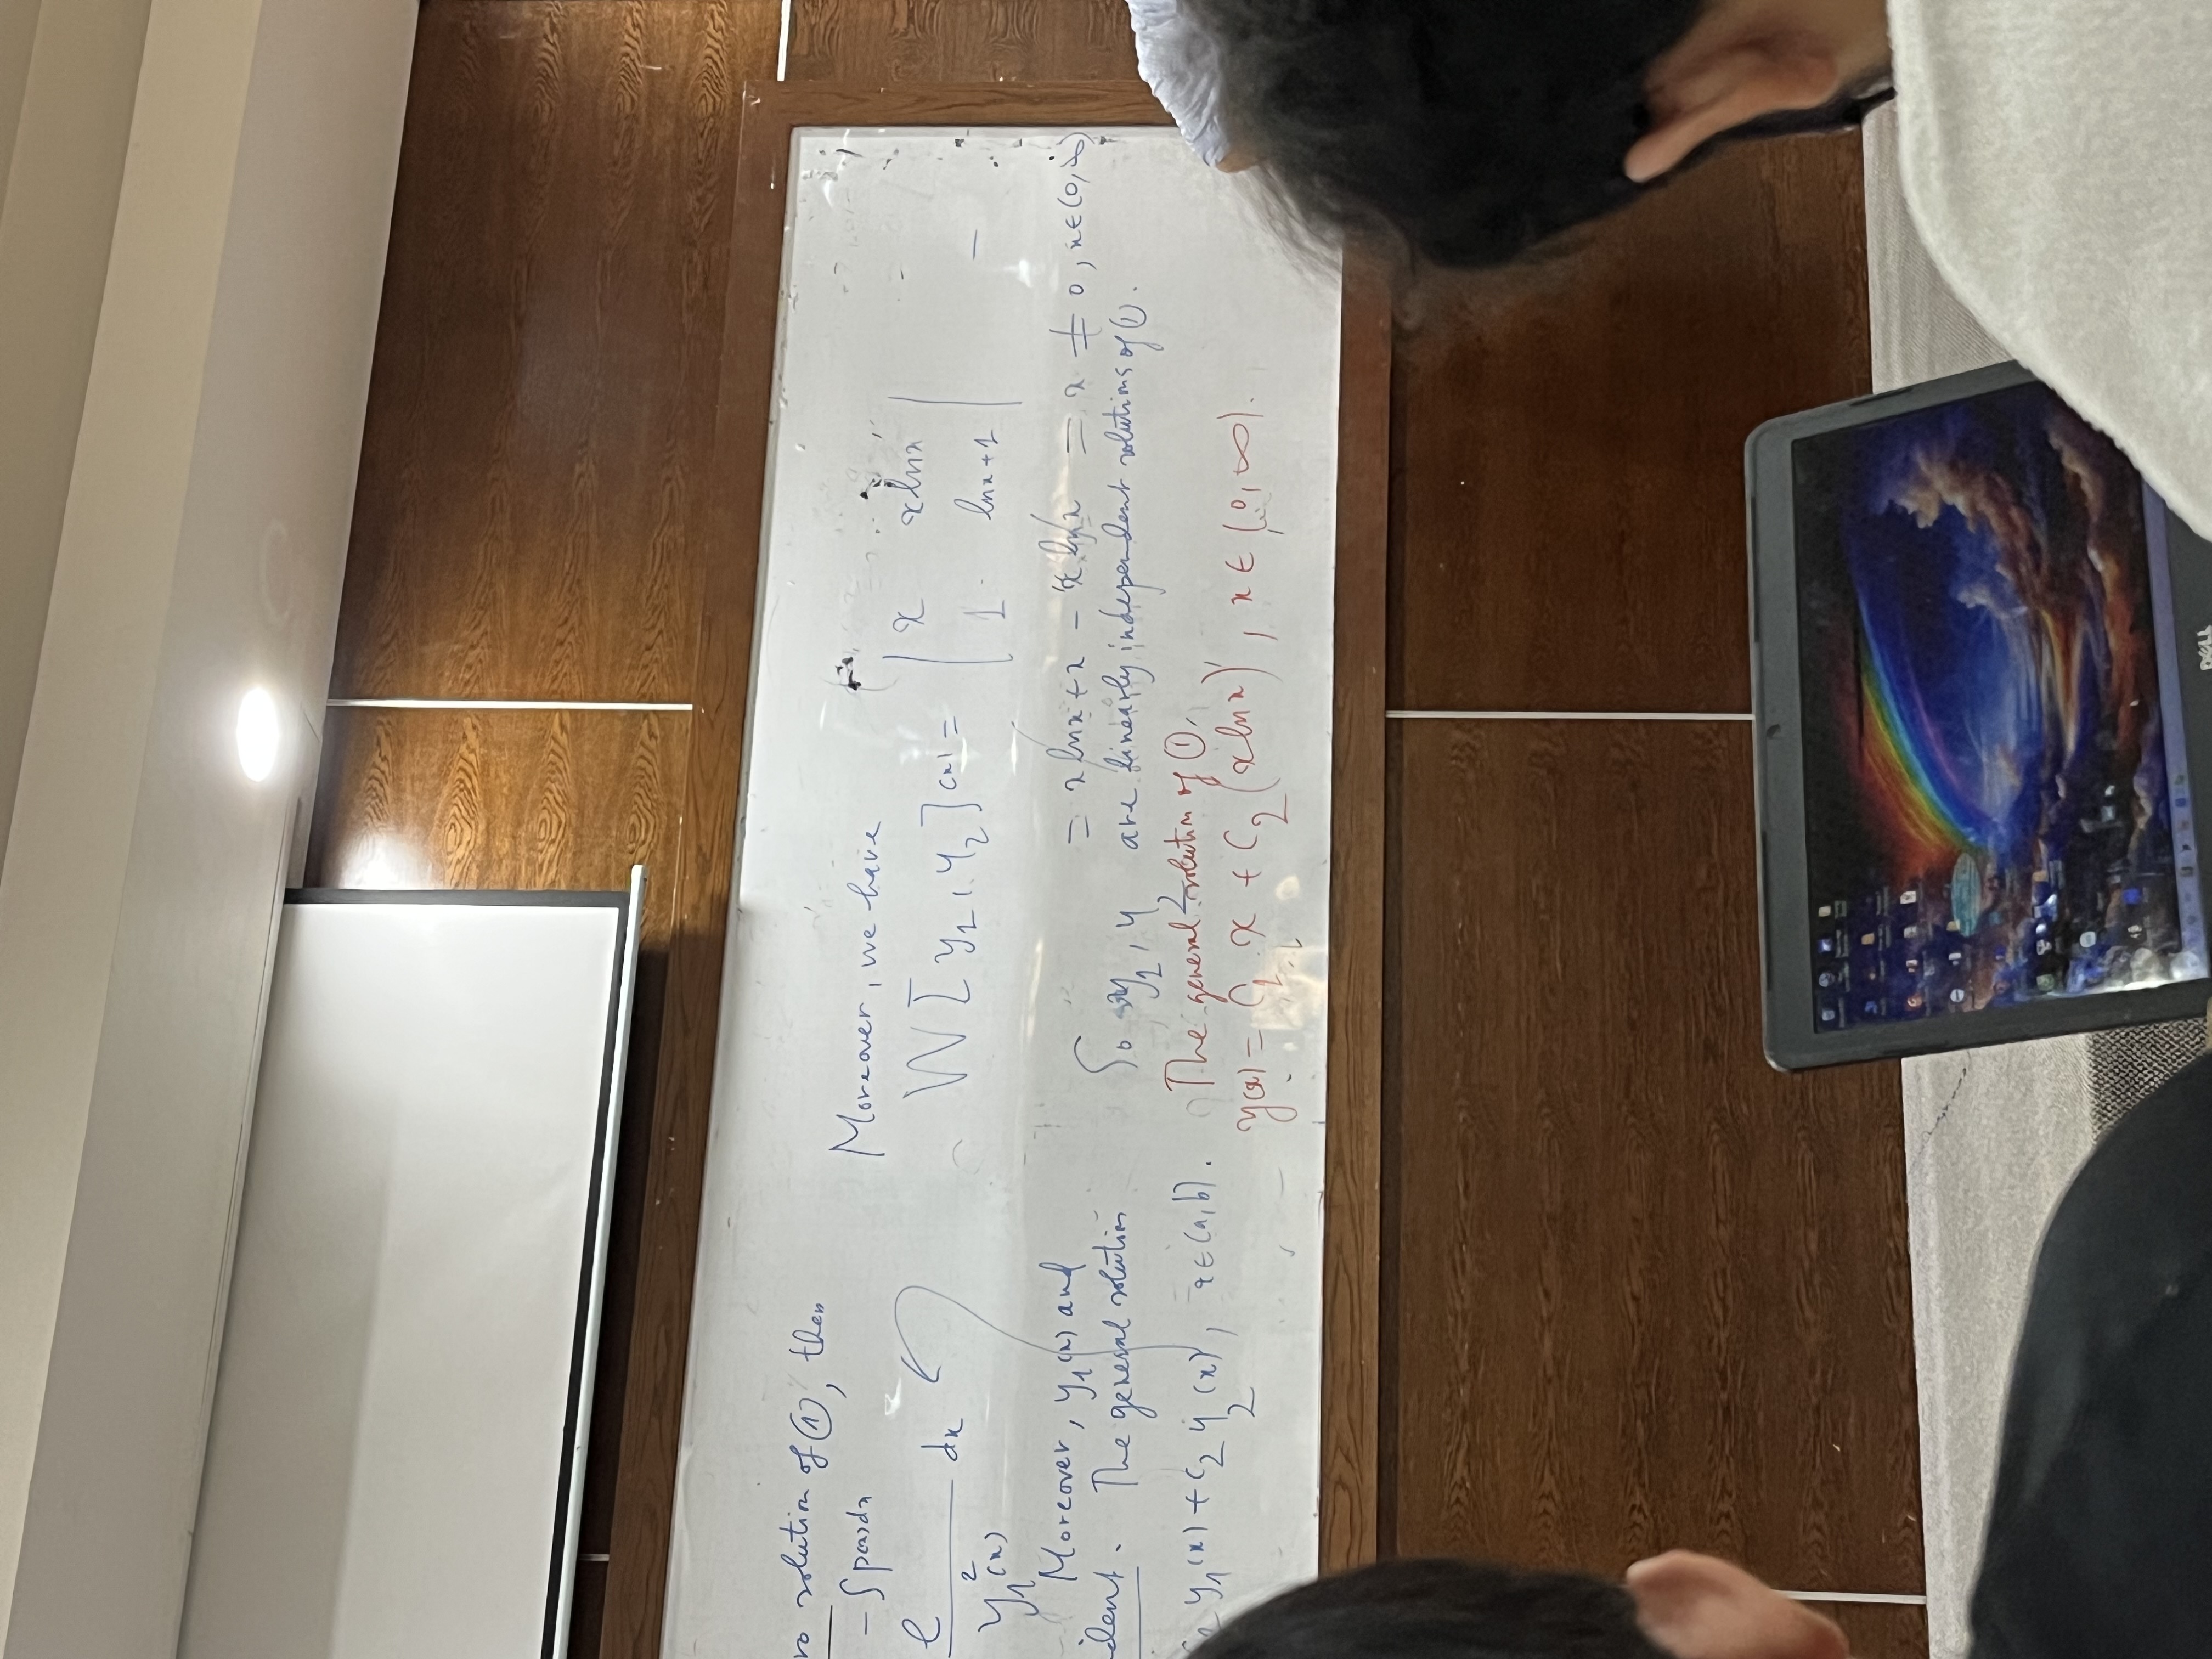 ro solution of ①, then
- ∫ p(x)dx
e
dx
y₁²(x)
Moreover, y₁(x) and
dent. The general solution
y₁(x) + c₂ y₂(x), x∈(a,b).
Moreover, we have
W[y₁, y₂](x) = | x xlnx |
| 1 lnx+1 |
= xlnx + x - xlnx = x ≠ 0, x∈(0,∞)
So y₁, y₂ are linearly independent solutions of ①.
The general solution of ①,
y(x) = C₁ x + C₂ (xlnx), x ∈ (0,∞).
DELL